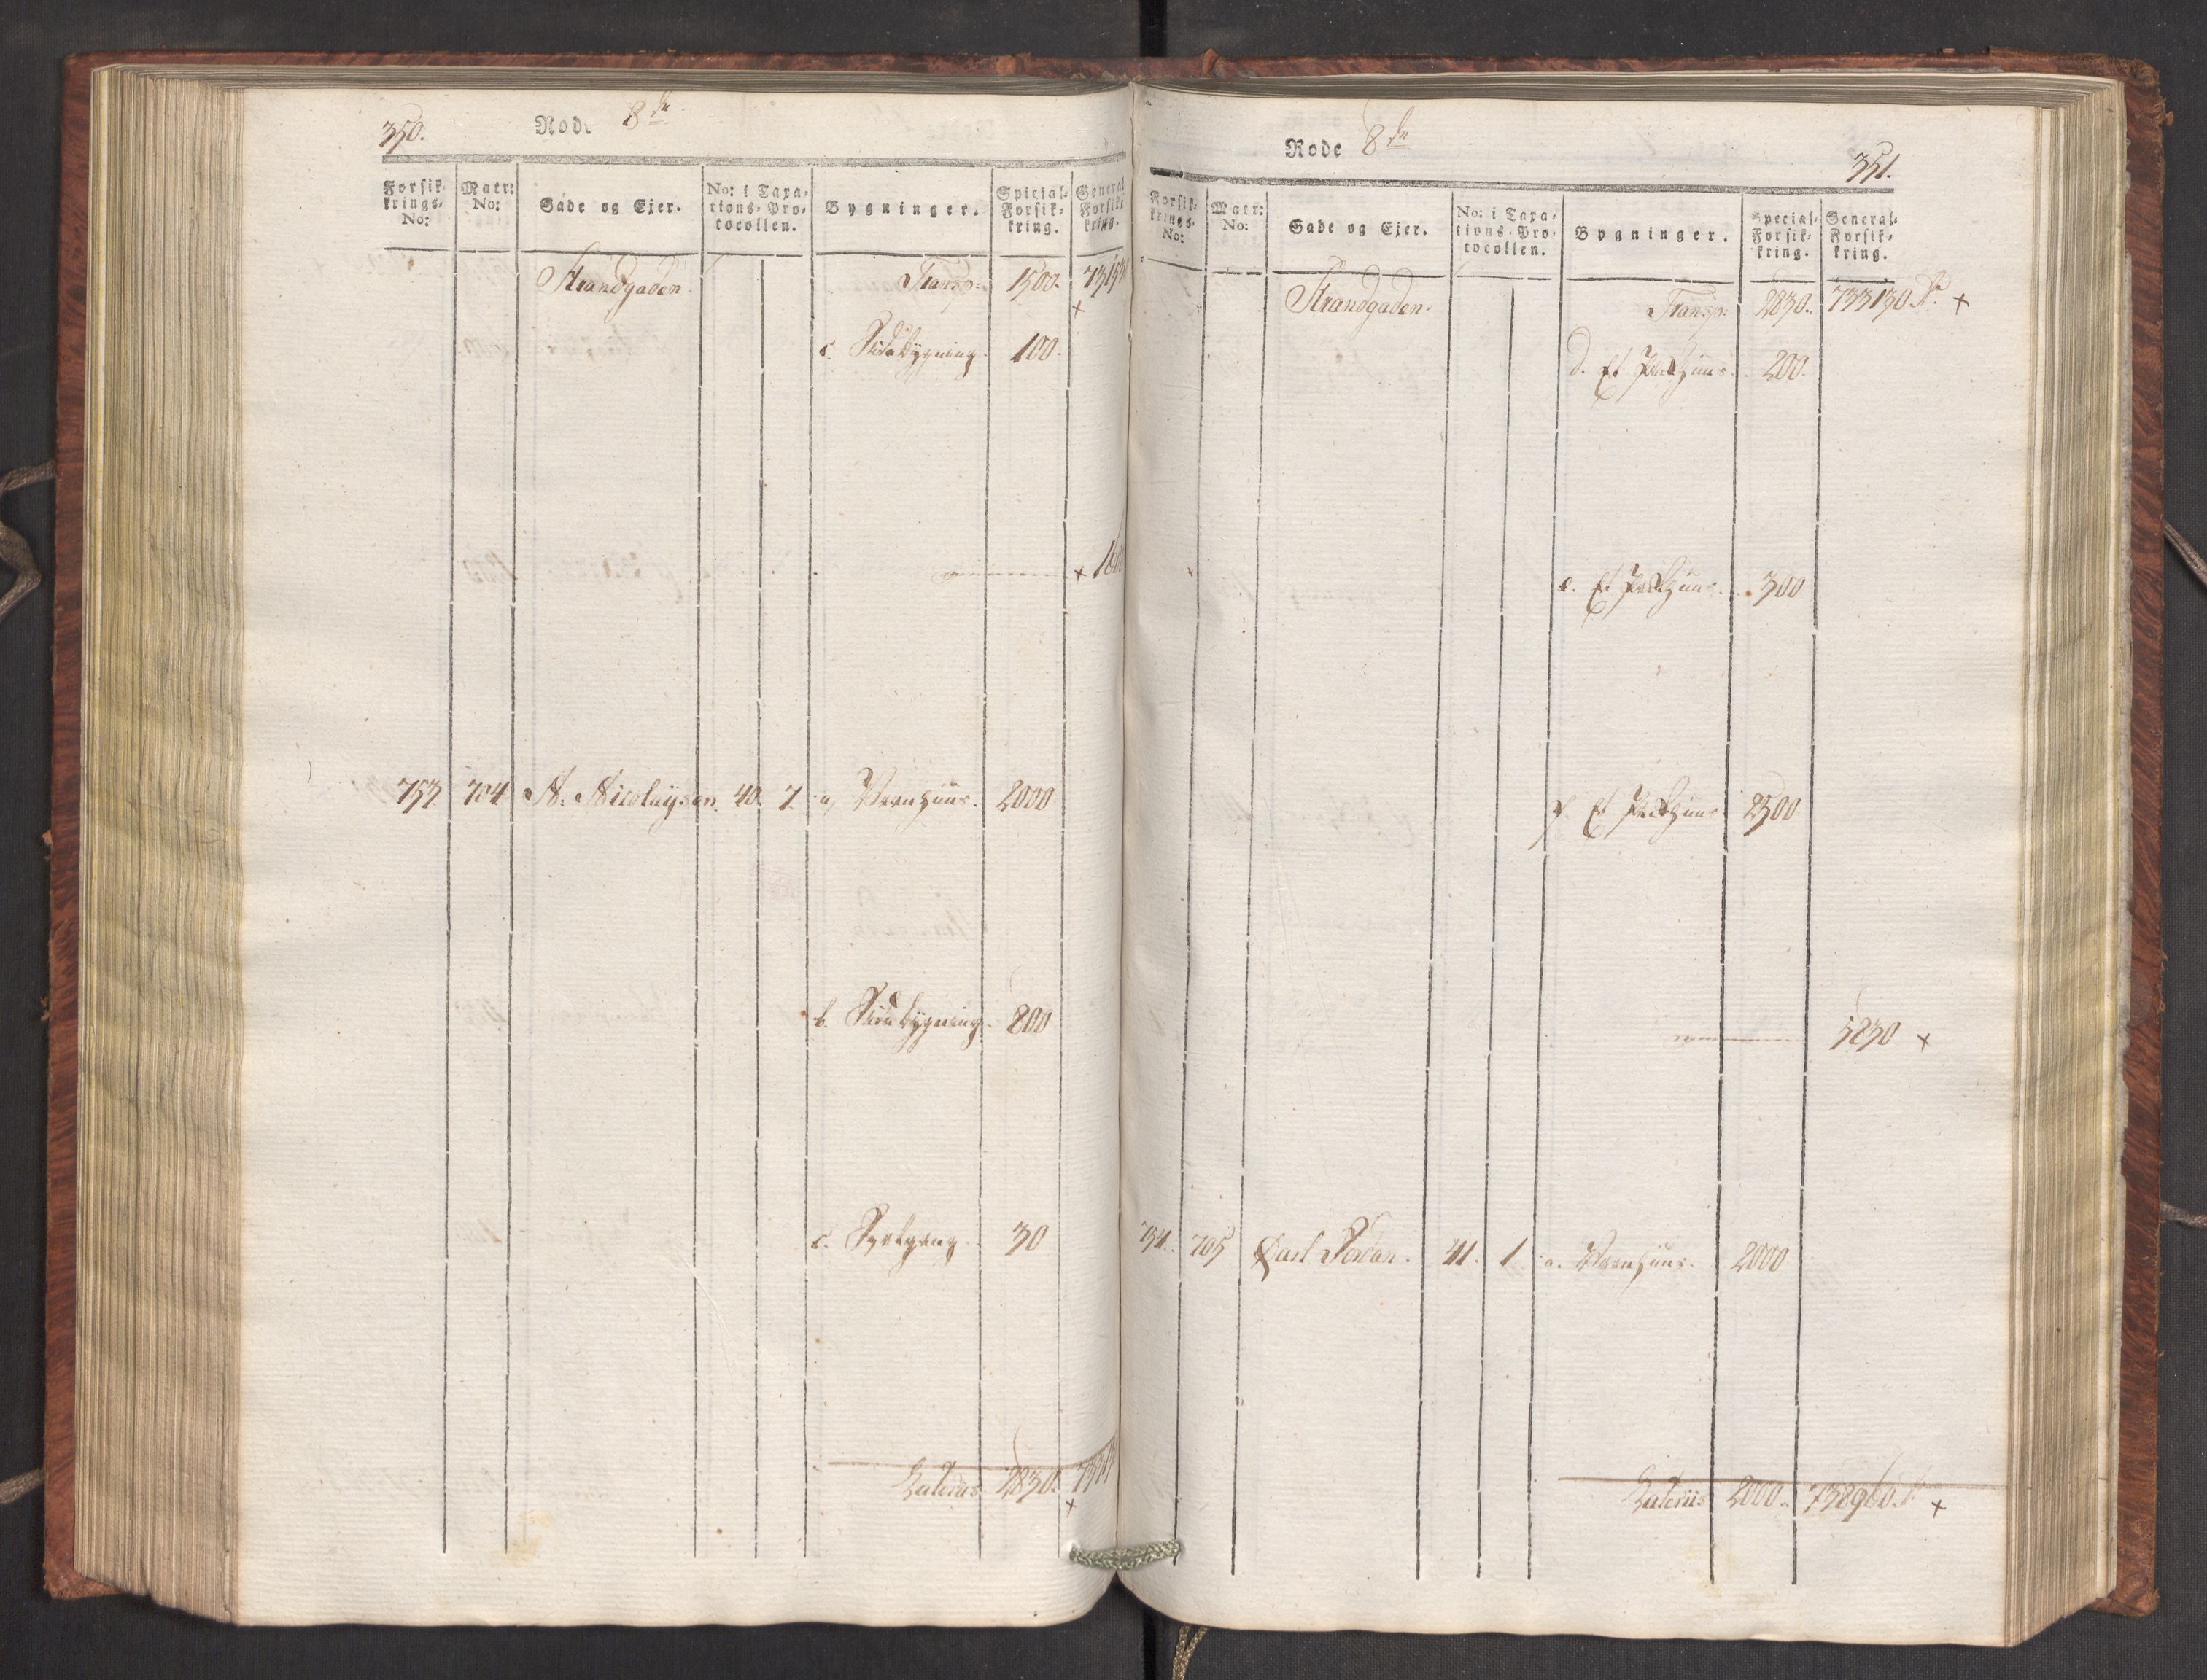 350.
Rode 8de
Forsik-
krings-
No:
Matr:
No:
Gade og Ejer.
No: i Taxa-
tions-Pro-
tocollen.
Bygninger.
Spicial-
Forsik-
kring.
General-
Forsik-
kring.
Strandgaden. Transp: 1500.
c. Sidebygning. 100.
753. 704 A. Nicolaysen. 40. 7. a, Vaanhuus. 2000
b. Sidebygning. 800
c. 30
Lateriis 2830.
Rode 8de
351.
Forsik-
krings-
No:
Matr:
No:
Gade og Ejer.
No: i Taxa-
tions-Pro-
tocollen.
Bygninger.
Special-
Forsik-
kring.
General-
Forsik-
kring.
Strandgaden. Transp: 2830. 733130
d. Et Pakhuus. 200.
e. Et Pakhuus. 300
f. Et Pakhuus 2500
5830
754. 705 Carl Jordan. 41. 1. a. Vaanhuus. 2000
Lateriis 2000. 738960